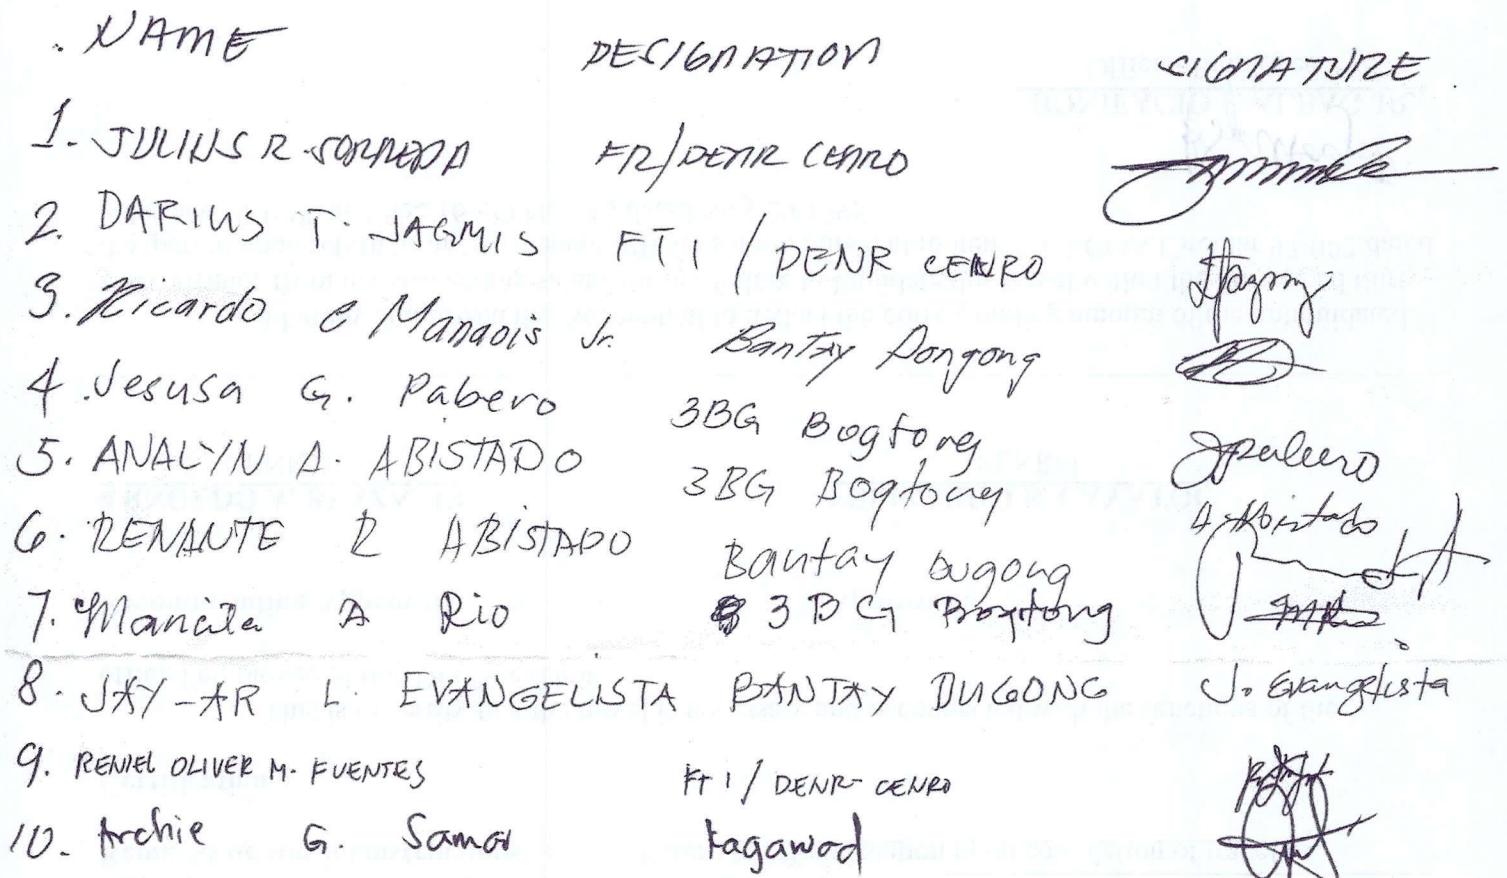 NAME DESIGNATION SIGNATURE
1. JULIUS R. FR/DENR CENRO
2. DARIUS T. JAGMIS FT 1 / DENR CENRO
3. Ricardo C Manaois Jr. Bantay Dongong
4. Jesusa G. Pabero 3BG Bogtong
5. ANALYN A. ABISTADO 3BG Bogtong Jpabero
6. RENANTE R ABISTADO Bantay Dugong A. Abistado
7. A Rio 3 BG Bogtong
8. JAY-AR L. EVANGELISTA BANTAY DUGONG J. Evangelista
9. RENIEL OLIVER M. FUENTES FT 1 / DENR CENRO
10. Archie G. Samoi tagawod